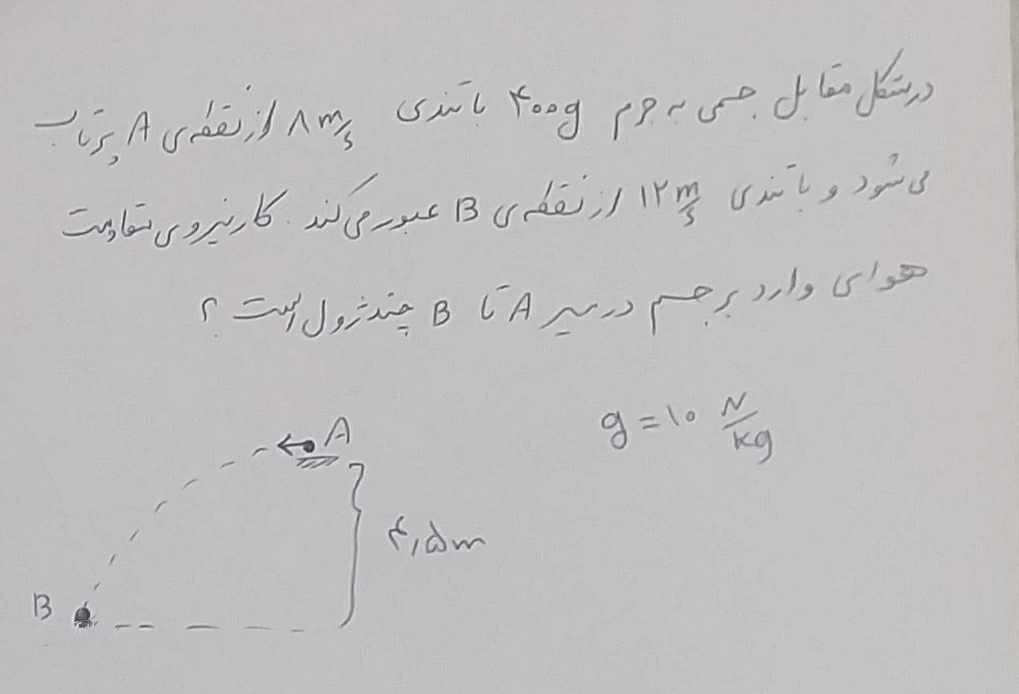 در شکل مقابل جسمی به جرم ۴۰۰g با تندی ۸ m/s از نقطه‌ی A پرتاب
می‌شود و با تندی ۱۲ m/s از نقطه‌ی B عبور می‌کند. کار نیروی مقاومت
هوای وارد بر جسم در مسیر A تا B چند ژول است؟
g = ۱۰ N/kg
A
۴٫۵m
B